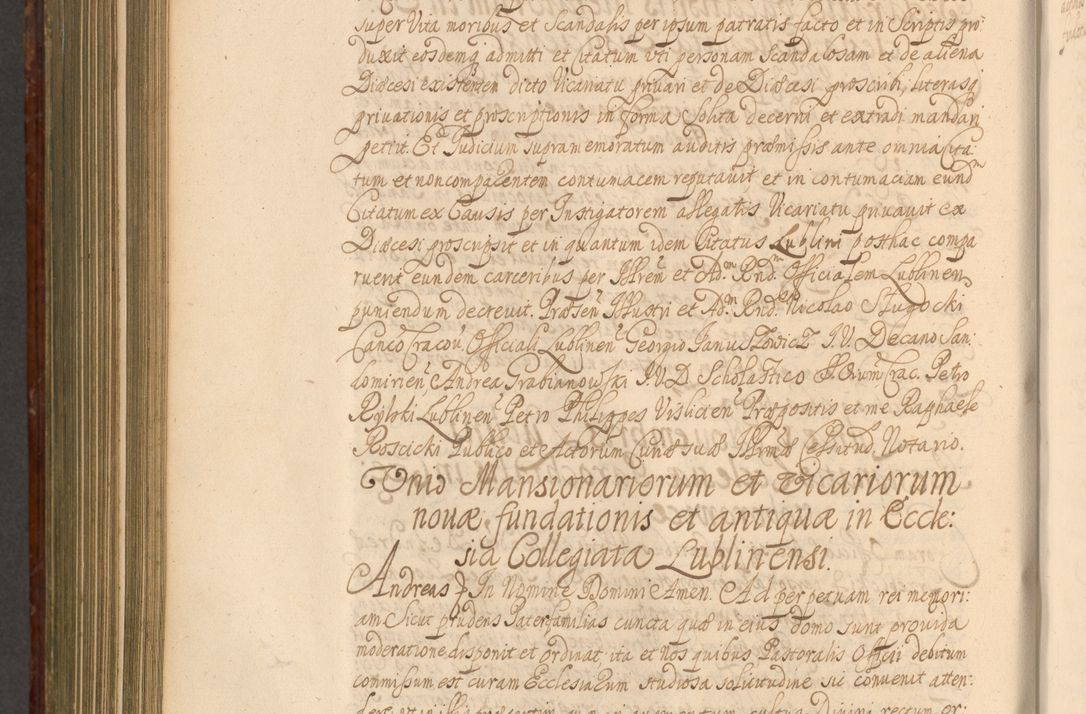 super Vita moribus et Scandalis per ipsum patratis facto et in Scriptis pro-
duxit eosdemq admitti et Citatum uti personam Scandalosam et de aliena
Diæcesi existentem dicto Vicariatu privari et de Diæcesi proscribi, literasq
privationis et proscriptionis in forma Solita decerni et extradi mandari
petiit. Et Judicium supramemoratum auditis præmissis ante omnia Cita-
tum et non comparentem contumacem reputavit et in contumaciam eund
Citatum ex Causis per Instigatorem allegatis Vicariatu privavit ex
Diæcesi proscripsit et in quantum idem Citatus Lublini posthac compa
ruerit eundem carceribus per Illrem et Adm Rnd. Officialem Lublinen
puniendum decrevit. Præsen Illustri et Adm Rnd. Nicolao Sługocki
Canco Cracov. Officiali Lublinen Georgio Januszowicz I.V. Decano San:
domirien, Andrea Grabianowski I.V.D Scholastico SSorum Crac. Petro
Rylski Lublinen Petro Philippes Vislicien Præpositis et me Raphaele
Roscicki Publico et Actorum Curiæ suæ Illrmæ Celsitud. Notario.
Unio Mansionariorum et Vicariorum
novæ, fundationis et antiquæ in Eccle:
sia Collegiata Lublinensi.
Andreas In Nomine Domini Amen. Ad perpetuam rei memori:
am Sicut prudens Paterfamilias cuncta quæ in eius domo sunt provida
moderatione disponit et ordinat ita et Nos quibus Pastoralis Officii debitum
commissum est curam Ecclesiarum studiosa solicitudine sic convenit atten:
cultus Divini rectum or: